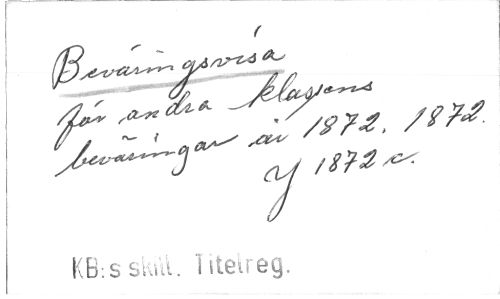 Beväringsvisa
för andra klassens
beväringar år 1872. 1872.
Y 1872 c.
KB:s skill. Titelreg.